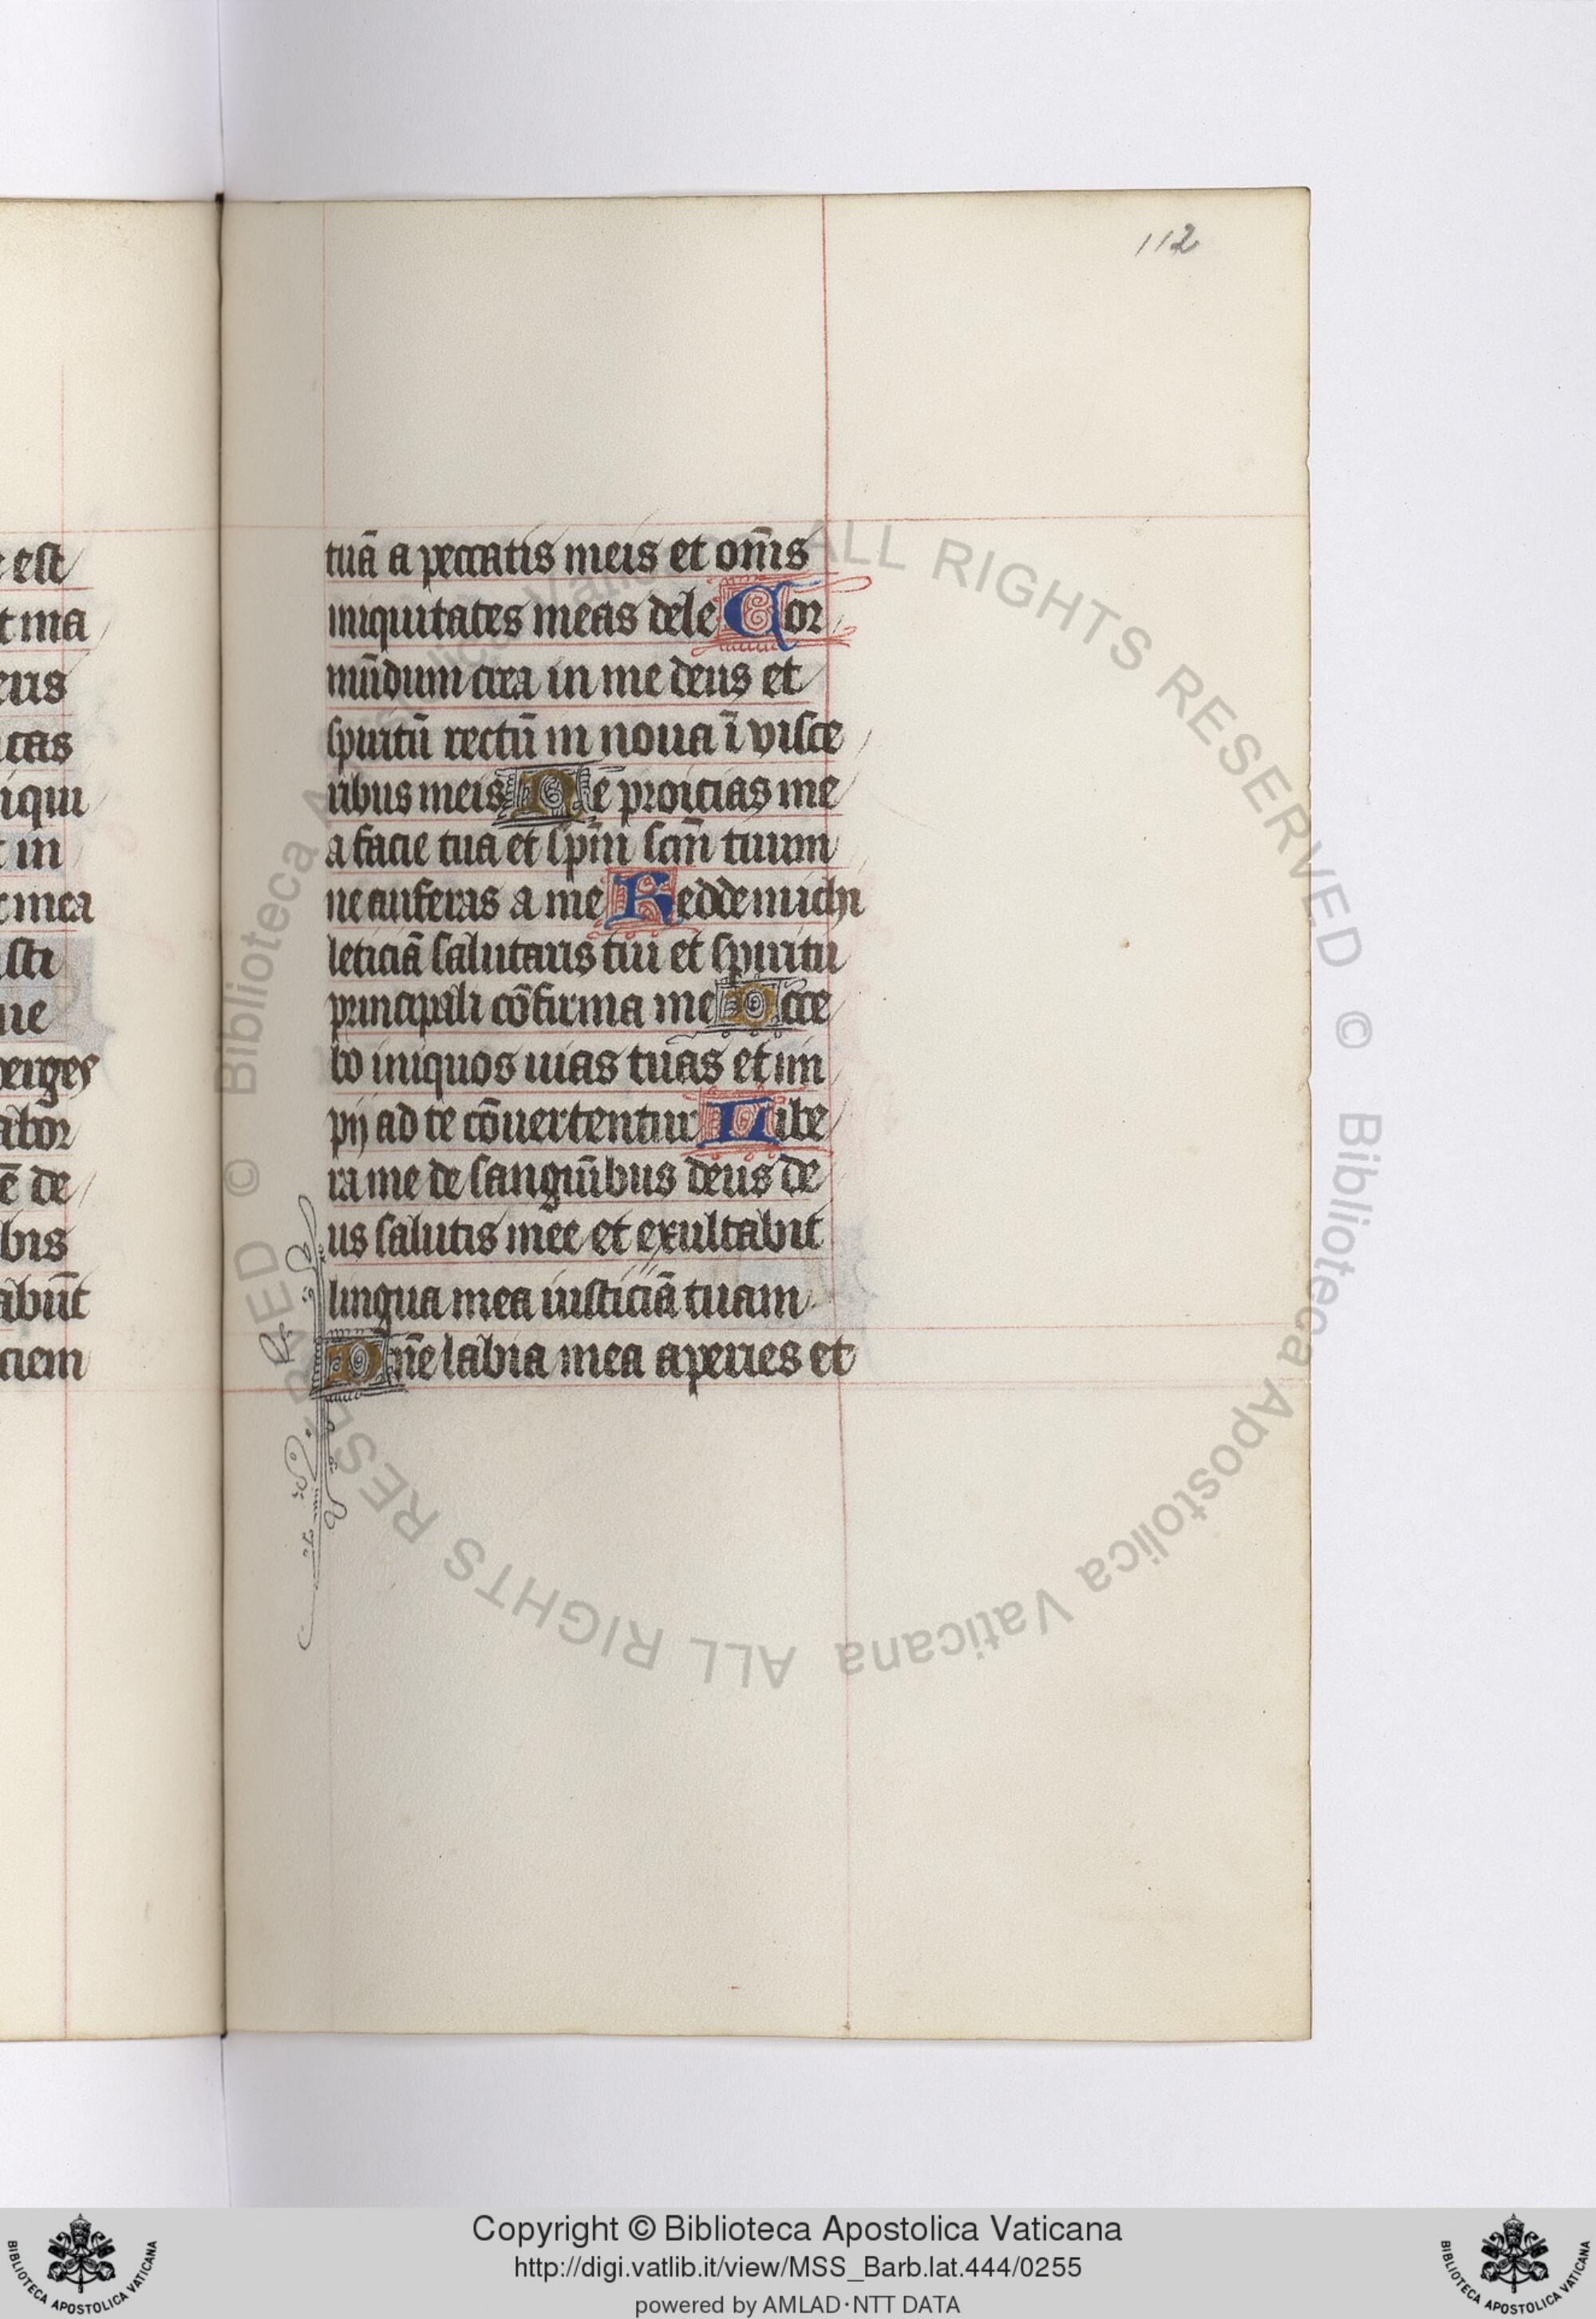 112
e est
t ma
eris
icas
iqui
t in
t mea
isti
ue
perges
abor
ē de
bis
abūt
ciem
tuā a peccatis meis et om̄s
iniquitates meas dele Cor
mūdum crea in me deus et
spiritū rectū in noua ī visce
ribus meis Ne proicias me
a facie tua et sp̄m sc̄m tuum
ne auferas a me Redde michi
leticiā salutaris tui et spiritu
principali cōfirma me Doce
bo iniquos uias tuas et im
pij ad te cōuertentur Libe
ra me de sanguībus deus de
us salutis mee et exultabit
lingua mea iusticiā tuam
Dn̄e labia mea aperies et
© Biblioteca Apostolica Vaticana ALL RIGHTS RESERVED © Biblioteca Apostolica Vaticana ALL RIGHTS RESERVED
Copyright © Biblioteca Apostolica Vaticana
http://digi.vatlib.it/view/MSS_Barb.lat.444/0255
powered by AMLAD·NTT DATA
BIBLIOTECA APOSTOLICA VATICANA
BIBLIOTECA APOSTOLICA VATICANA